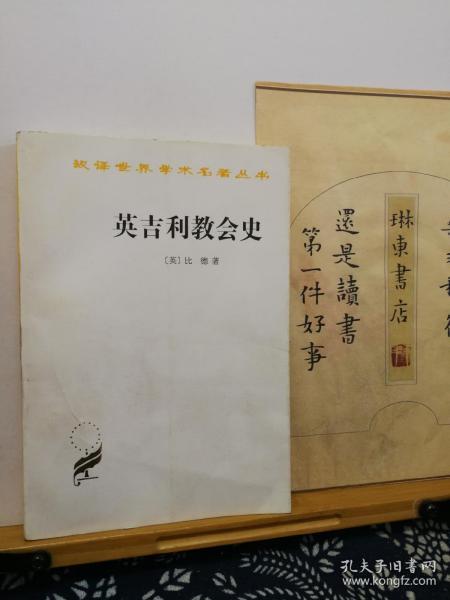 汉译世界学术名著丛书
英吉利教会史
〔英〕比 德 著
琳東書店
還是讀書
第一件好事
孔夫子旧书网
www.kongfz.com